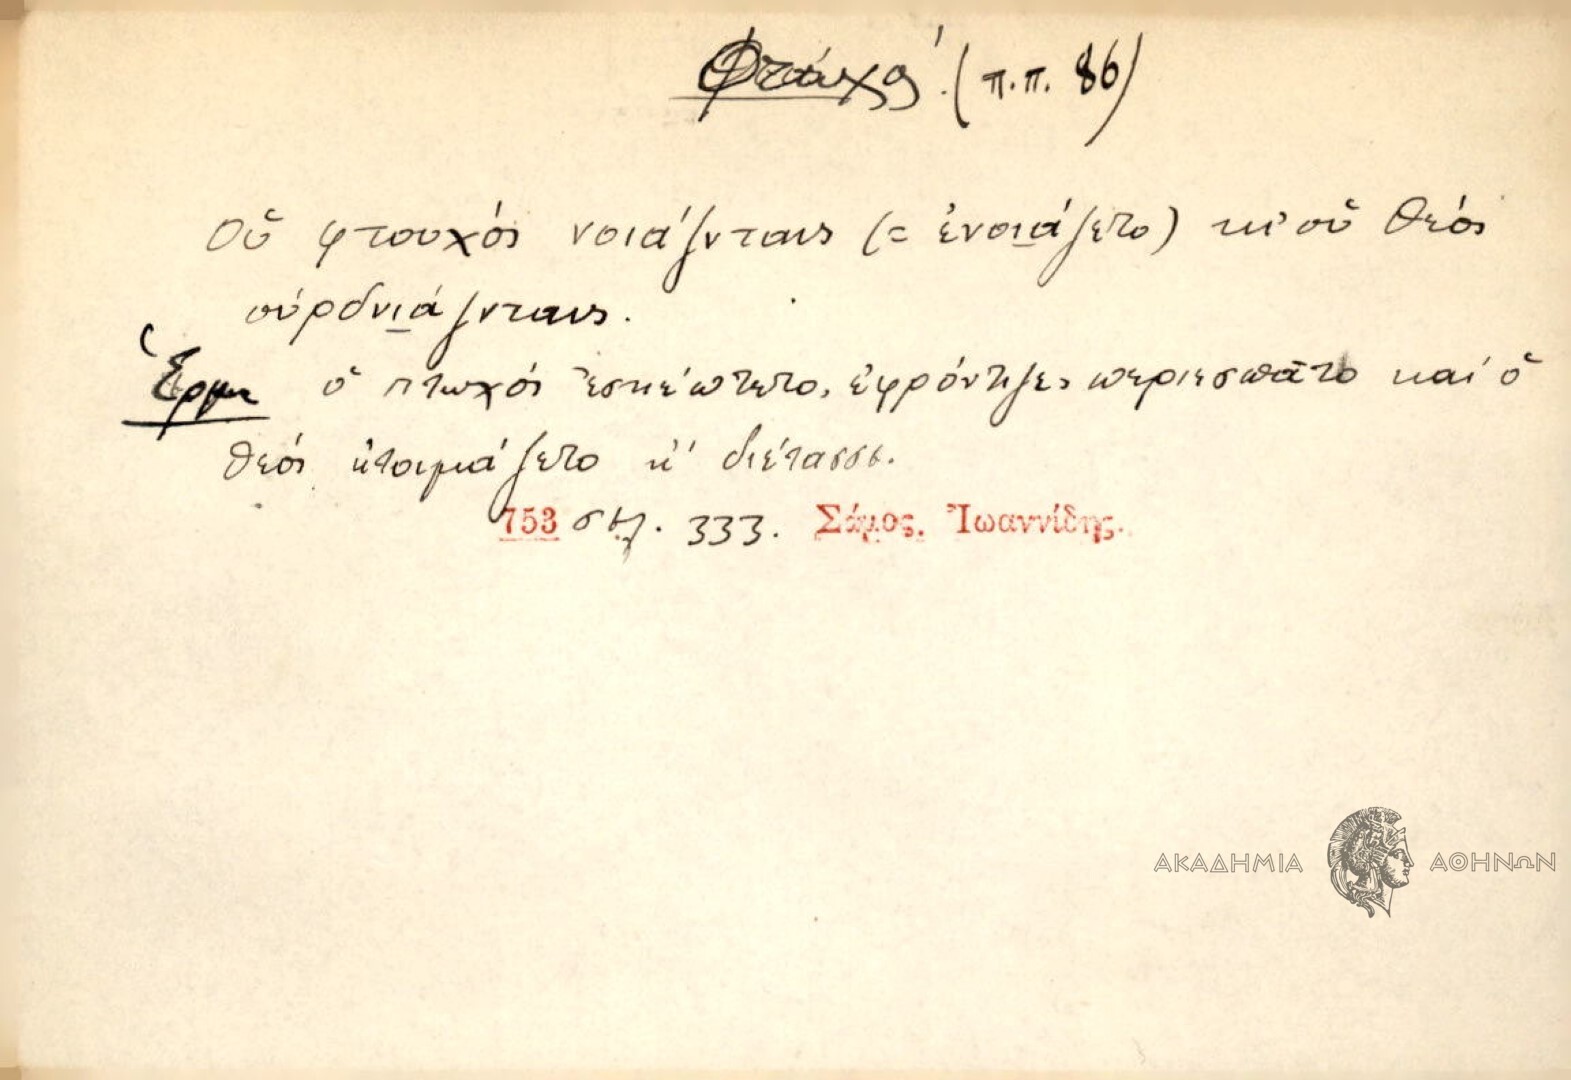 Φτωχός. (π.π. 86)
Οὑ φτουχός νοιάζνταυς (= ἐνοιάζετο) κι' οὑ θεός
ούρδνιάζνταυς.
Ἑρμ ὁ πτωχός ἐσκέπτετο, ἐφρόντιζε, περιεσπᾶτο καί ὁ
θεός ἑτοιμάζετο κ' διέτασσε.
753 σελ. 333. Σάμος, Ἰωαννίδης.
ΑΚΑΔΗΜΙΑ ΑΘΗΝΩΝ